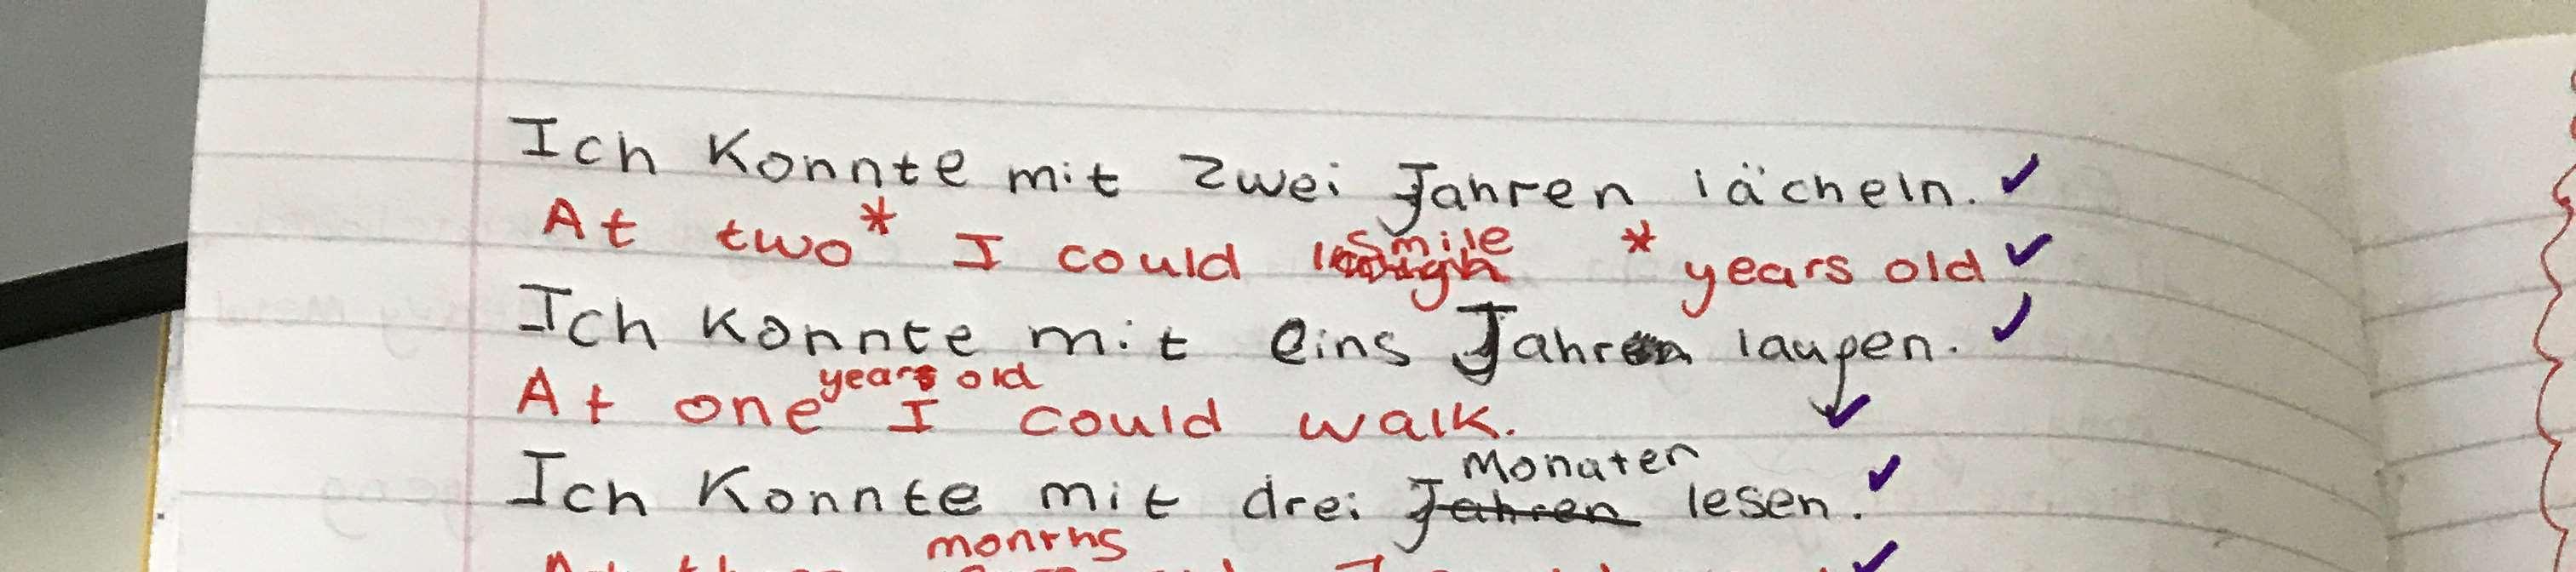 Ich Konnte mit zwei Jahren lächeln.
At two* I could smile * years old
Ich Konnte mit eins Jahr laufen.
At one year old I could walk.
Ich Konnte mit drei Monaten lesen.
months